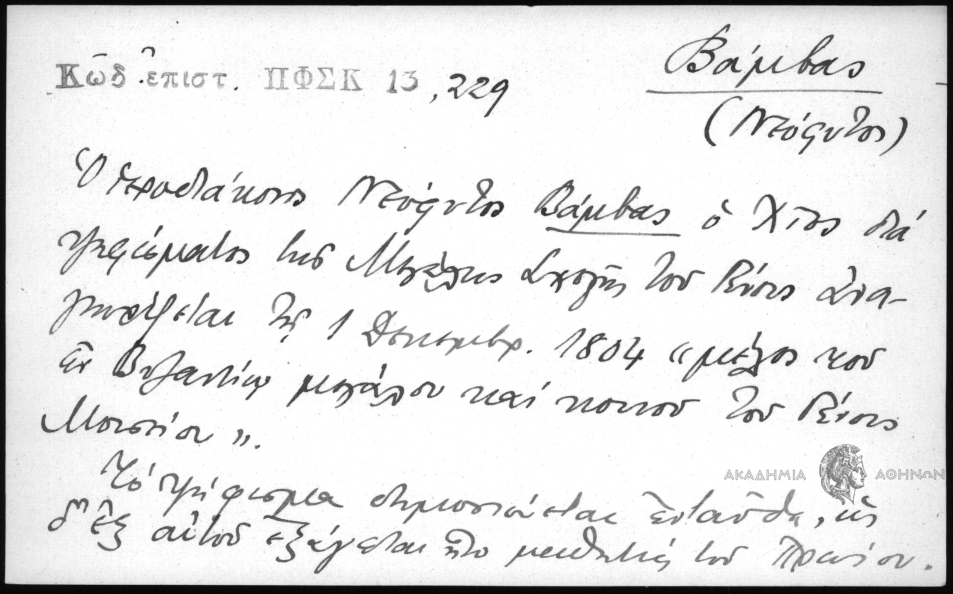 Κῶδ. ἐπιστ. ΠΦΣΚ 13, 229
Βάμβας
(Νεόφυτος)
Ὁ ἱεροδιάκονος Νεόφυτος Βάμβας ὁ Χῖος διὰ
ψηφίσματος τῆς Μεγάλης Σχολῆς τοῦ Γένους ἀνα-
γνωρίζεται τῇ 1 Δεκεμβρ. 1804 «μέλος τοῦ
ἐν Βυζαντίῳ μεγάλου καὶ κοινοῦ τοῦ Γένους
Μουσείου».
Τὸ ψήφισμα δημοσιεύεται ἐνταῦθα, ὡς
δ' ἐξ αὐτοῦ ἐξάγεται ἦτο μαθητὴς τοῦ Πρωίου.
ΑΚΑΔΗΜΙΑ ΑΘΗΝΩΝ